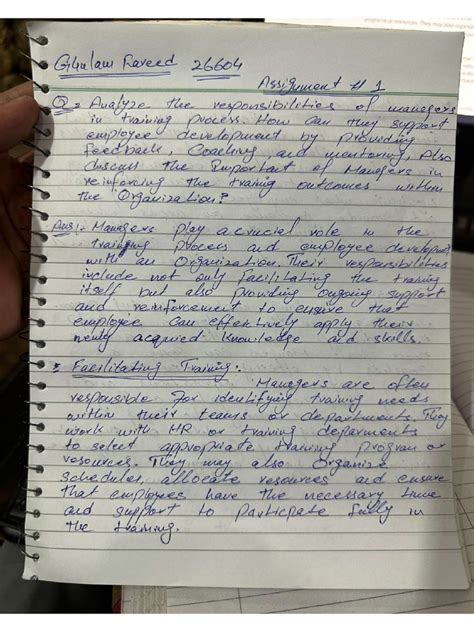 Ghulam Fareed 26604
Assignment # 1
Q: Analyze the responsibilities of managers
in training process. How can they support
employee development by providing
feedback, Coaching, and mentoring, Also
discuss the Important of Managers in
reinforcing the training outcomes within
the Organization?
Ans:- Managers play a crucial role in the
training process and employee development
with an Organization. Their responsibilities
include not only facilitating the training
itself but also providing ongoing support
and reinforcement to ensure that
employee can effectively apply their
newly acquired knowledge and skills.
: Facilitating Training:
Managers are often
responsible for identifying training needs
within their teams or departments. They
work with HR or training deparments
to select appropriate training program or
resources. They may also Organize
Schedules, allocate resources and ensure
that employees have the necessary time
and support to participate fully in
the training.